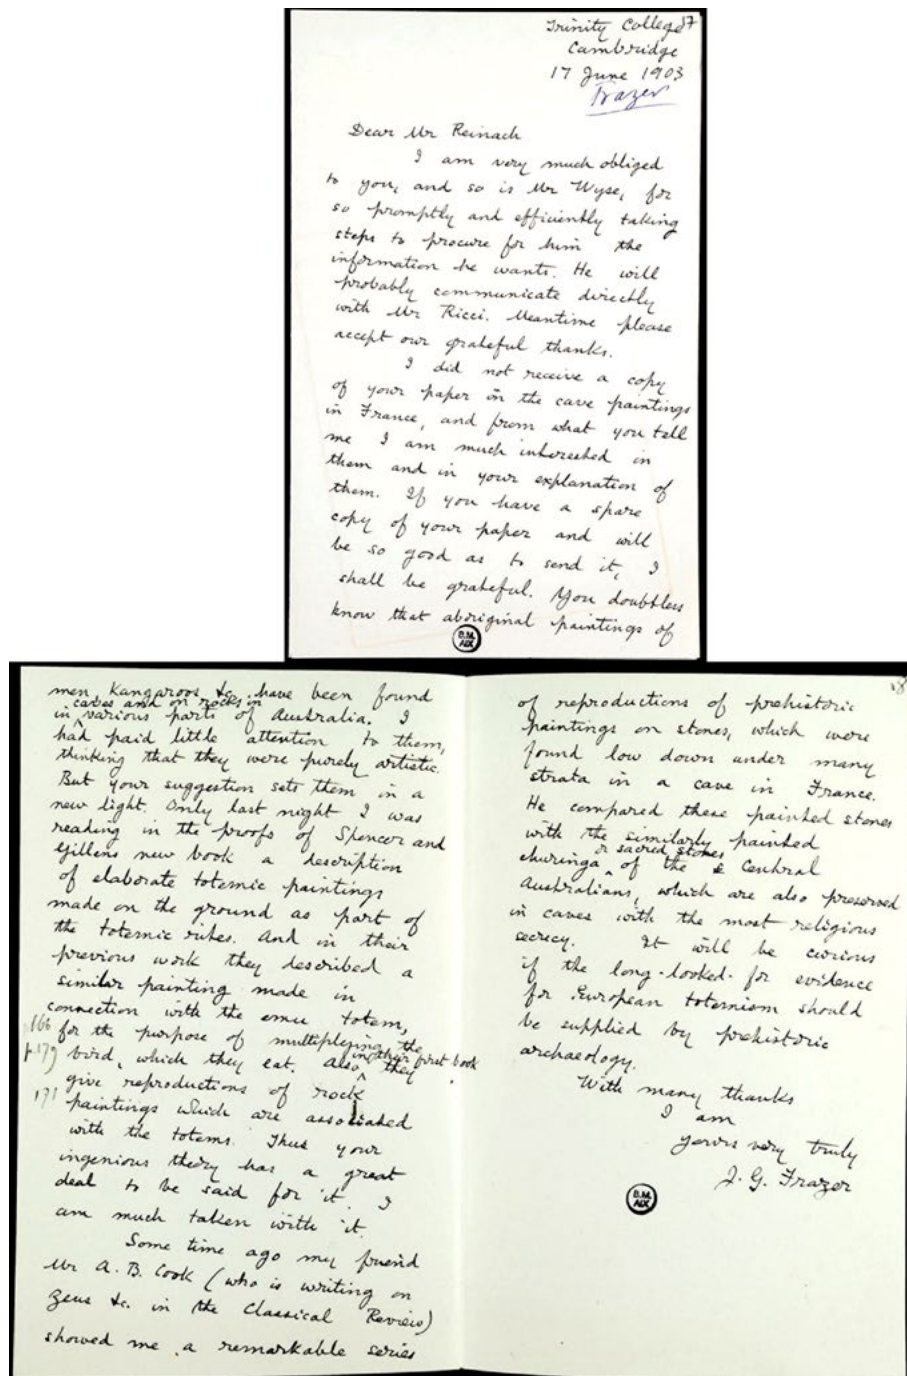 Trinity College
87
Cambridge
17 June 1903
Frazer
Dear Mr Reinach
I am very much obliged
to you, and so is Mr Wyse, for
so promptly and efficiently taking
steps to procure for him the
information he wants. He will
probably communicate directly
with Mr Ricci. Meantime please
accept our grateful thanks.
I did not receive a copy
of your paper on the cave paintings
in France, and from what you tell
me I am much interested in
them and in your explanation of
them. If you have a spare
copy of your paper and will
be so good as to send it, I
shall be grateful. You doubtless
know that aboriginal paintings of
B.M.
AIX
men, Kangaroos &c. have been found
caves and on rocks in
in various parts of Australia. I
had paid little attention to them,
thinking that they were purely artistic.
But your suggestion sets them in a
new light. Only last night I was
reading in the proofs of Spencer and
Gillens new book a description
of elaborate totemic paintings
made on the ground as part of
the totemic rites. And in their
previous work they described a
similar painting made in
connection with the emu totem,
for the purpose of multiplying the
in their first book
p.179
bird, which they eat. Also they
give reproductions of rock
171
paintings which are associated
with the totems. Thus your
ingenious theory has a great
deal to be said for it. I
am much taken with it.
Some time ago my friend
Mr A. B. Cook (who is writing on
Zeus &c. in the Classical Review)
showed me a remarkable series
of reproductions of prehistoric
paintings on stones, which were
found low down under many
strata in a cave in France.
He compared these painted stones
with the similarly painted
or sacred stones
churinga of the Central
Australians, which are also preserved
in caves with the most religious
secrecy. It will be curious
if the long-looked-for evidence
for European totemism should
be supplied by prehistoric
archaeology.
With many thanks
I am
Yours very truly
J. G. Frazer
B.M.
AIX